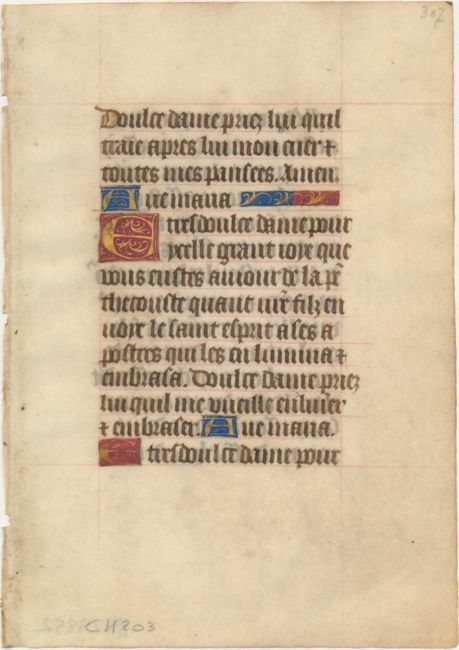 307
Doulce dame priez lui quil
traie apres lui mon cuer ⁊
toutes mes pansees. Amen.
Aue maria
E tresdoulce dame pour
ycelle grant ioye que
vous eustes au iour de la pẽ
thecouste quant vr̃e filz en
uoye le saint esprit a ses a
postres qui les en lumina ⁊
embrasa. Doulce dame priez
lui quil me vueille enlumer
⁊ embraser. Aue maria.
E tresdoulce dame pour
CH203